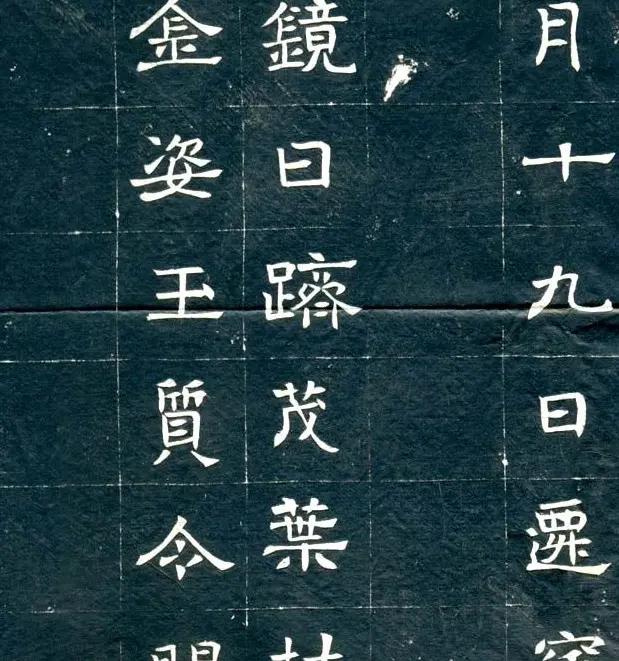 月十九日遷
鏡日躋茂葉
金姿玉質令